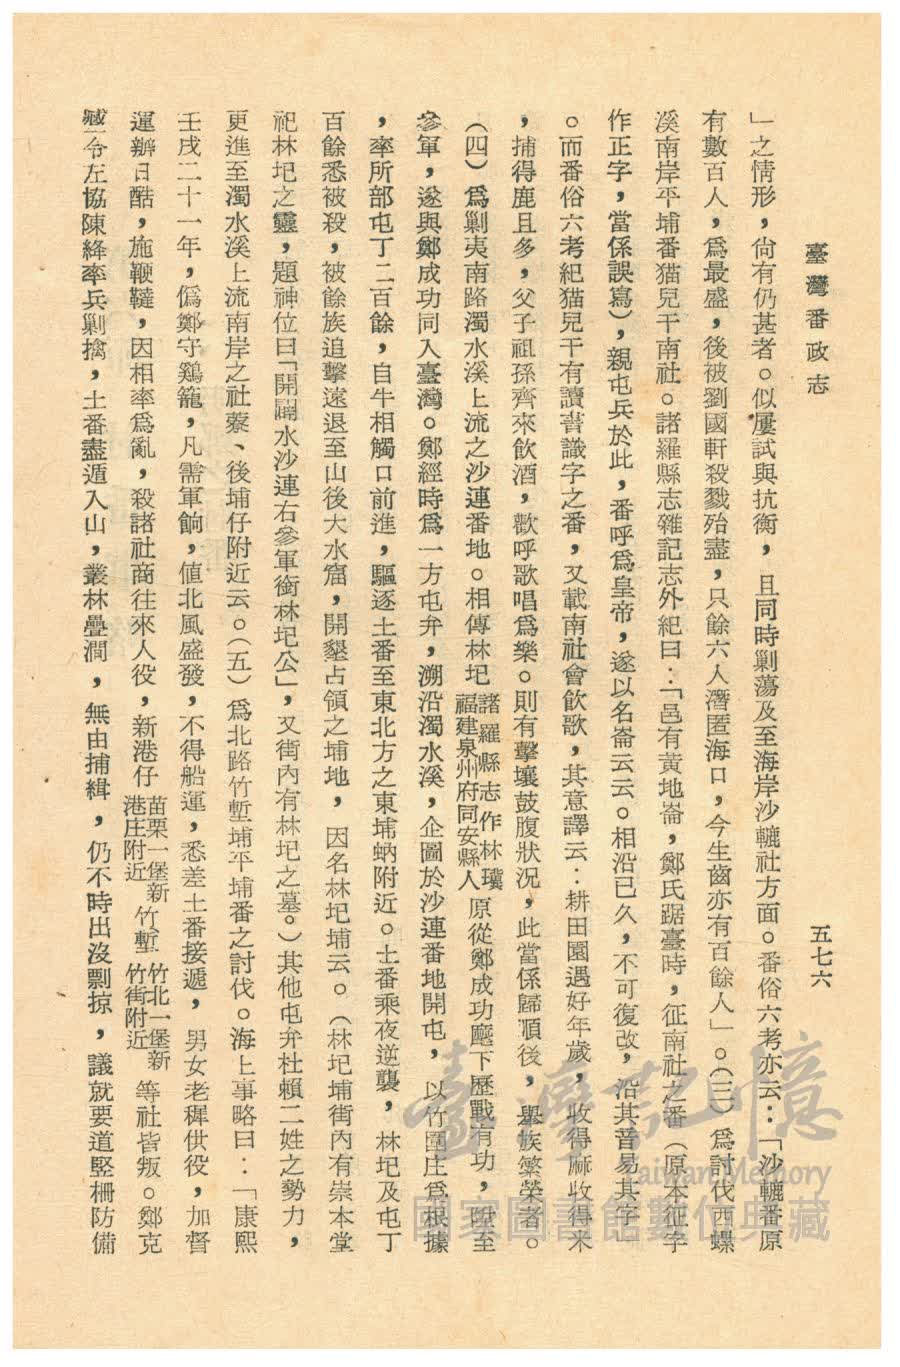 臺灣番政志
五七六
」之情形，尙有仍甚者。似屢試與抗衡，且同時剿蕩及至海岸沙轆社方面。番俗六考亦云：「沙轆番原
有數百人，爲最盛，後被劉國軒殺戮殆盡，只餘六人潛匿海口，今生齒亦有百餘人」。（三）爲討伐西螺
溪南岸平埔番猫兒干南社。諸羅縣志雜記志外紀曰：「邑有黃地崙，鄭氏踞臺時，征南社之番（原本征字
作正字，當係誤寫），親屯兵於此，番呼爲皇帝，遂以名崙云云。相沿已久，不可復改，沿其音易其字」
。而番俗六考紀猫兒干有讀書識字之番，又載南社會飲歌，其意譯云：耕田園遇好年歲，收得麻收得米
，捕得鹿且多，父子祖孫齊來飲酒，歡呼歌唱爲樂。則有擊壤鼓腹狀況，此當係歸順後，舉族繁榮者。
（四）爲剿夷南路濁水溪上流之沙連番地。相傳林圮諸羅縣志作林𤩹福建泉州府同安縣人原從鄭成功麾下歷戰有功，陞至
參軍，遂與鄭成功同入臺灣。鄭經時爲一方屯弁，溯沿濁水溪，企圖於沙連番地開屯，以竹圍庄爲根據
，率所部屯丁二百餘，自牛相觸口前進，驅逐土番至東北方之東埔蚋附近。土番乘夜逆襲，林圮及屯丁
百餘悉被殺，被餘族追擊遠退至山後大水窟，開墾占領之埔地，因名林圮埔云。（林圮埔街內有崇本堂
祀林圮之靈，題神位曰「開闢水沙連右參軍銜林圮公」，又街內有林圮之墓。）其他屯弁杜賴二姓之勢力，
更進至濁水溪上流南岸之社藔、後埔仔附近云。（五）爲北路竹塹埔平埔番之討伐。海上事略曰：「康熙
壬戌二十一年，僞鄭守鷄籠，凡需軍餉，値北風盛發，不得船運，悉差土番接遞，男女老穉供役，加督
運辦日酷，施鞭韃，因相率爲亂，殺諸社商往來人役，新港仔苗栗一堡新港庄附近竹塹竹北一堡新竹街附近等社皆叛。鄭克
臧令左協陳絳率兵剿擒，土番盡遁入山，叢林疊澗，無由捕緝，仍不時出沒剽掠，議就要道堅柵防備
臺灣記憶
Taiwan Memory
國家圖書館數位典藏